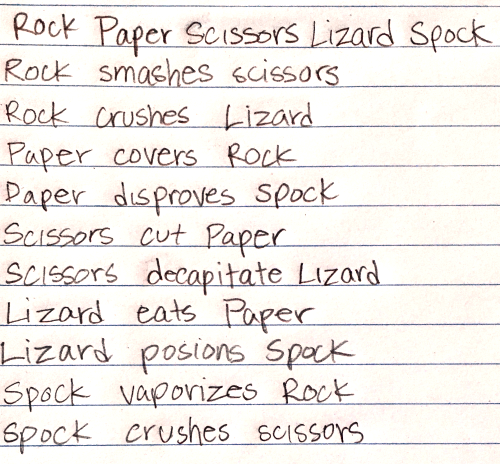 Rock Paper Scissors Lizard Spock
Rock smashes scissors
Rock crushes Lizard
Paper covers Rock
Paper disproves Spock
Scissors cut Paper
Scissors decapitate Lizard
Lizard eats Paper
Lizard posions Spock
Spock vaporizes Rock
Spock crushes scissors